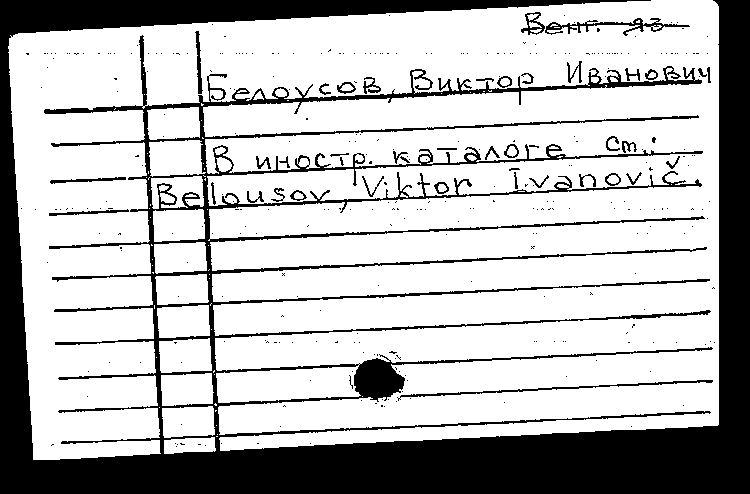 Венг. яз
Белоусов, Виктор Иванович
В иностр. каталоге см.:
Belousov, Viktor Ivanovič.